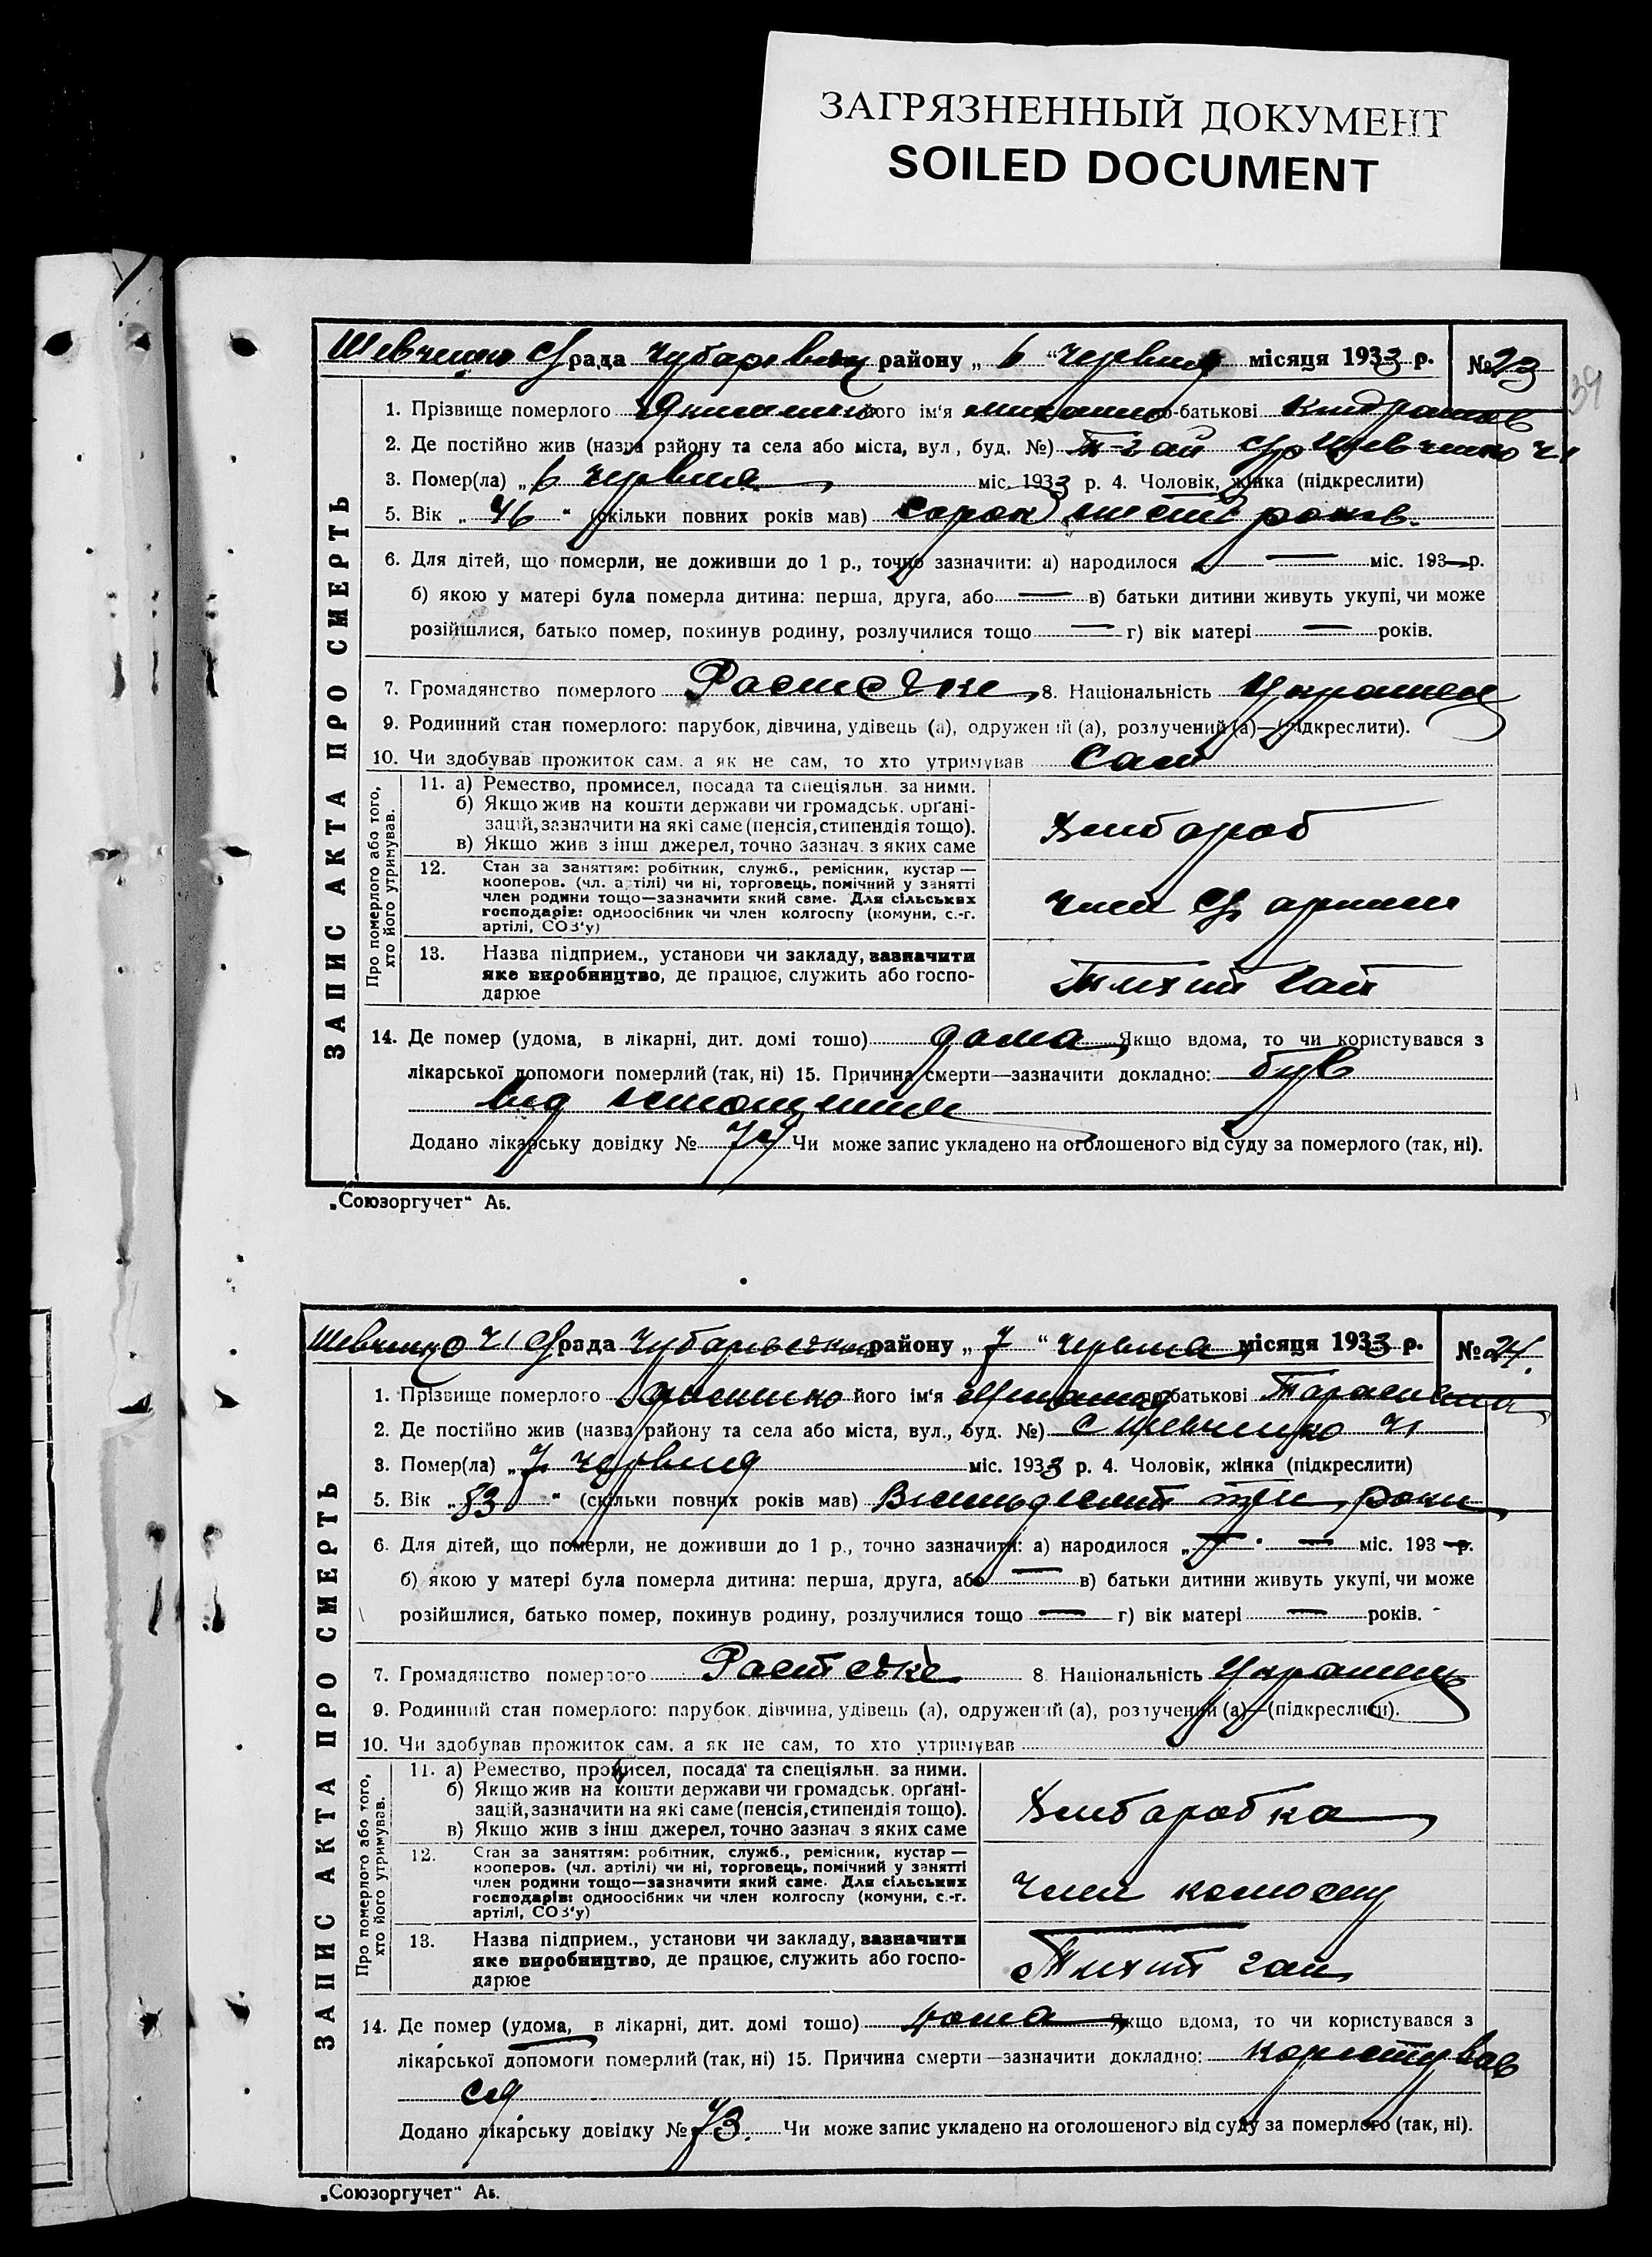 ЗАГРЯЗНЕННЫЙ ДОКУМЕНТ
SOILED DOCUMENT
39
Шевченко С/рада Чубарівськ району „ 6 “ Червня місяця 1933 р. № 23
ЗАПИС АКТА ПРО СМЕРТЬ
1. Прізвище померлого його ім'я по-батькові
2. Де постійно жив (назва району та села або міста, вул, буд. №) Т-гай с/р Шевченко Ч1
3. Помер(ла) „ 6 червня міс. 1933 р. 4. Чоловік, жінка (підкреслити)
5. Вік „ 46 “ (скільки повних років мав) сорок шість років.
6. Для дітей, що померли, не доживши до 1 р., точно зазначити: а) народилося — міс. 193— р.
б) якою у матері була померла дитина: перша, друга, або — в) батьки дитини живуть укупі, чи може
розійшлися, батько помер, покинув родину, розлучилися тощо — г) вік матері — років.
7. Громадянство померлого 8. Національність Українец
9. Родинний стан померлого: парубок, дівчина, удівець (а), одружений (а), розлучений (а)—(підкреслити).
10. Чи здобував прожиток сам, а як не сам, то хто утримував Сам
Про померлого або того, хто його утримував.
11. а) Ремество, промисел, посада та спеціяльн. за ними.
б) Якщо жив на кошти держави чи громадськ. органі-
зацій, зазначити на які саме (пенсія, стипендія тощо).
в) Якщо жив з інш. джерел, точно зазнач. з яких саме
Хлібароб
12. Стан за заняттям: робітник, служб., ремісник, кустар —
кооперов. (чл. артілі) чи ні, торговець, помічний у занятті
член родини тощо—зазначити який саме. Для сільських
господарів: одноосібник чи член колгоспу (комуни, с.-г.
артілі, СОЗ'у)
член С/г артили
13. Назва підприєм., установи чи закладу, зазначити
яке виробництво, де працює, служить або госпо-
дарює
Тихий Гай
14. Де помер (удома, в лікарні, дит. домі тощо) дома Якщо вдома, то чи користувався з
лікарської допомоги померлий (так, ні) 15. Причина смерти—зазначити докладно: був
від
Додано лікарську довідку № 74 Чи може запис укладено на оголошеного від суду за померлого (так, ні).
„Союзоргучет“ Аб.
Шевченко Ч1 С/рада району „ 7 “ Червня місяця 1933 р. № 24.
ЗАПИС АКТА ПРО СМЕРТЬ
1. Прізвище померлого його ім'я по батькові Тарасивна
2. Де постійно жив (назва району та села або міста, вул., буд. №) с Шевченко Ч1
3. Помер(ла) „ 7 червня міс. 1933 р. 4. Чоловік, жінка (підкреслити)
5. Вік „ 83 “ (скільки повних років мав) Висимдесят три роки
6. Для дітей, що померли, не доживши до 1 р., точно зазначити: а) народилося „ — міс. 193— р.
б) якою у матері була померла дитина: перша, друга, або — в) батьки дитини живуть укупі, чи може
розійшлися, батько помер, покинув родину, розлучилися тощо — г) вік матері — років.
7. Громадянство померлого 8. Національність Українец
9. Родинний стан померлого: парубок, дівчина, удівець (а), одружений (а), розлучений (а)—(підкреслити).
10. Чи здобував прожиток сам, а як не сам, то хто утримував
Про померлого або того, хто його утримував.
11. а) Ремество, промисел, посада та спеціяльн. за ними.
б) Якщо жив на кошти держави чи громадськ. органі-
зацій, зазначити на які саме (пенсія, стипендія тощо).
в) Якщо жив з інш. джерел, точно зазнач. з яких саме
Хлібаробка
12. Стан за заняттям: робітник, служб., ремісник, кустар —
кооперов. (чл. артілі) чи ні, торговець, помічний у занятті
член родини тощо—зазначити який саме. Для сільських
господарів: одноосібник чи член колгоспу (комуни, с.-г.
артілі, СОЗ'у)
член
13. Назва підприєм., установи чи закладу, зазначити
яке виробництво, де працює, служить або госпо-
дарює
Тихий гай
14. Де помер (удома, в лікарні, дит. домі тощо) дома Якщо вдома, то чи користувався з
лікарської допомоги померлий (так, ні) 15. Причина смерти—зазначити докладно: користував
ся
Додано лікарську довідку № 73. Чи може запис укладено на оголошеного від суду за померлого (так, ні).
„Союзоргучет“ Аб.